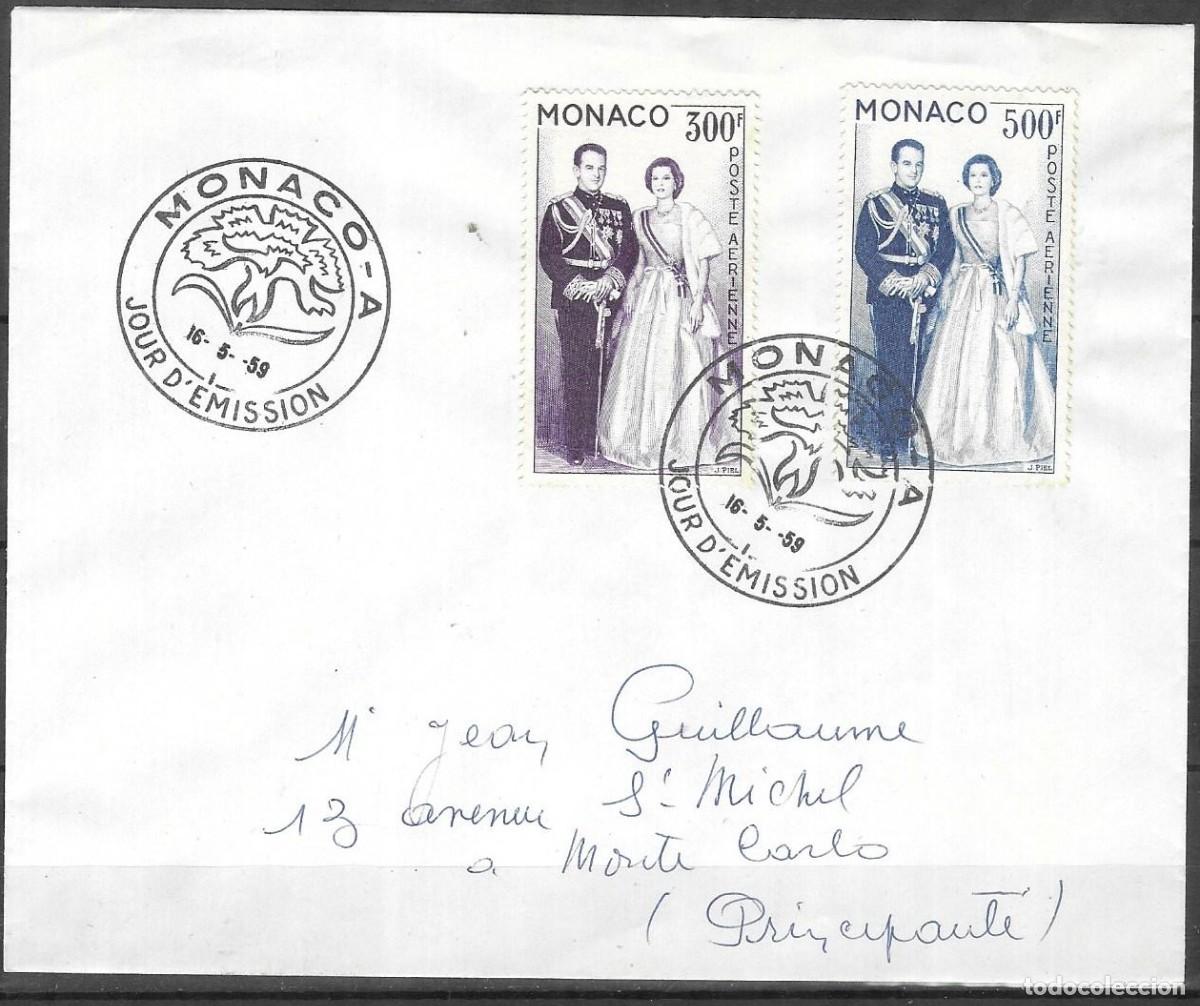 MONACO 300F
POSTE AERIENNE
J. PIEL
MONACO 500F
POSTE AERIENNE
J. PIEL
MONACO-A
16-5-59
JOUR D'ÉMISSION
MONACO-A
16-5-59
JOUR D'ÉMISSION
Mr Jean Guillaume
13 avenue St Michel
a Monte Carlo
(Principauté)
todocoleccion